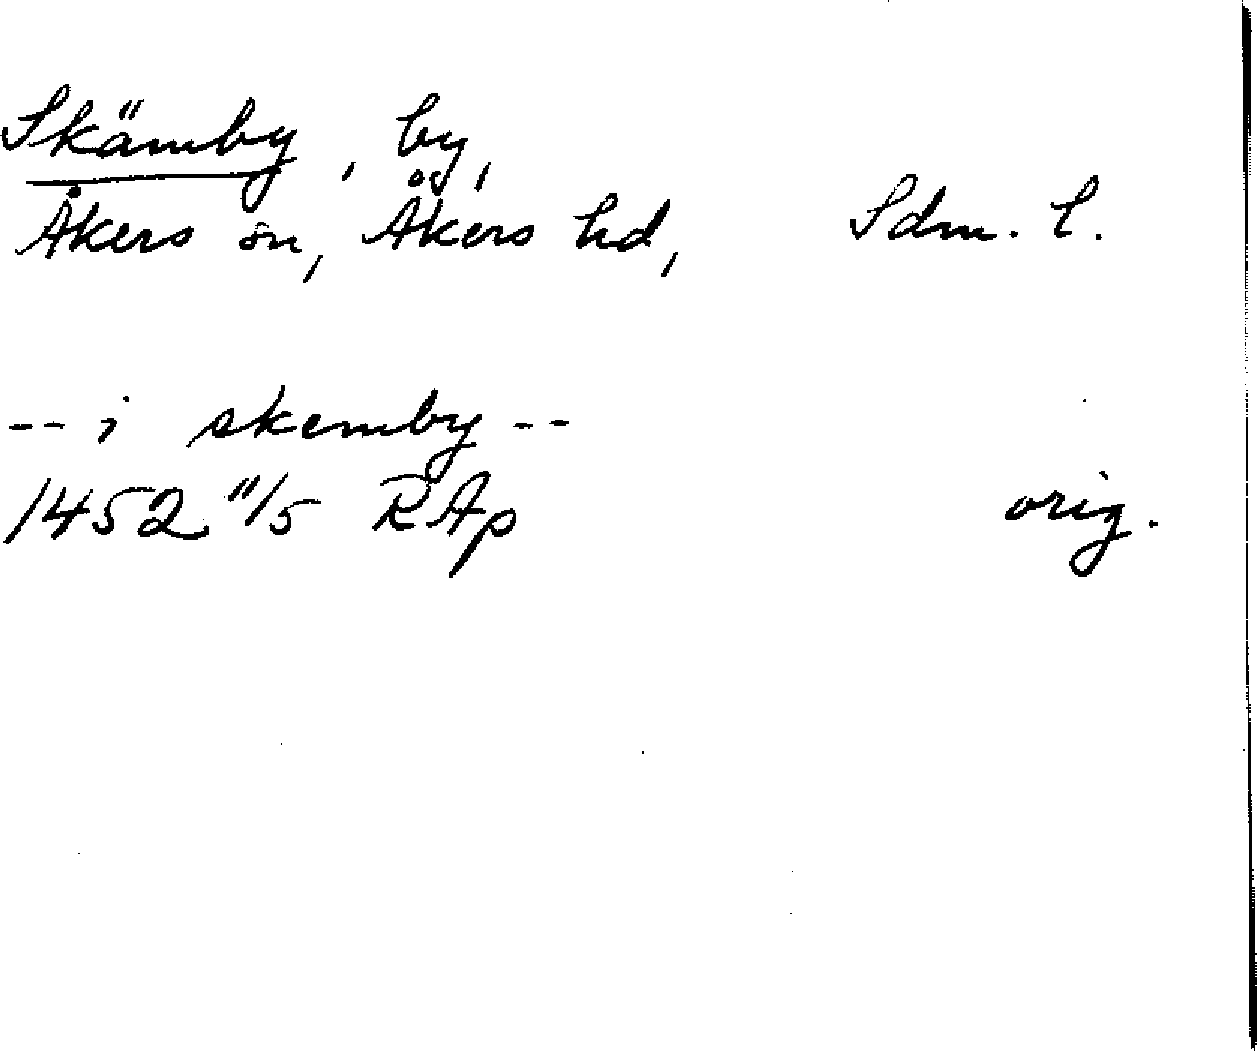 Skämby, by,
Åkers sn, Åkers hd, Sdm. l.
-- i skemby --
1452 11/5 RAp orig.